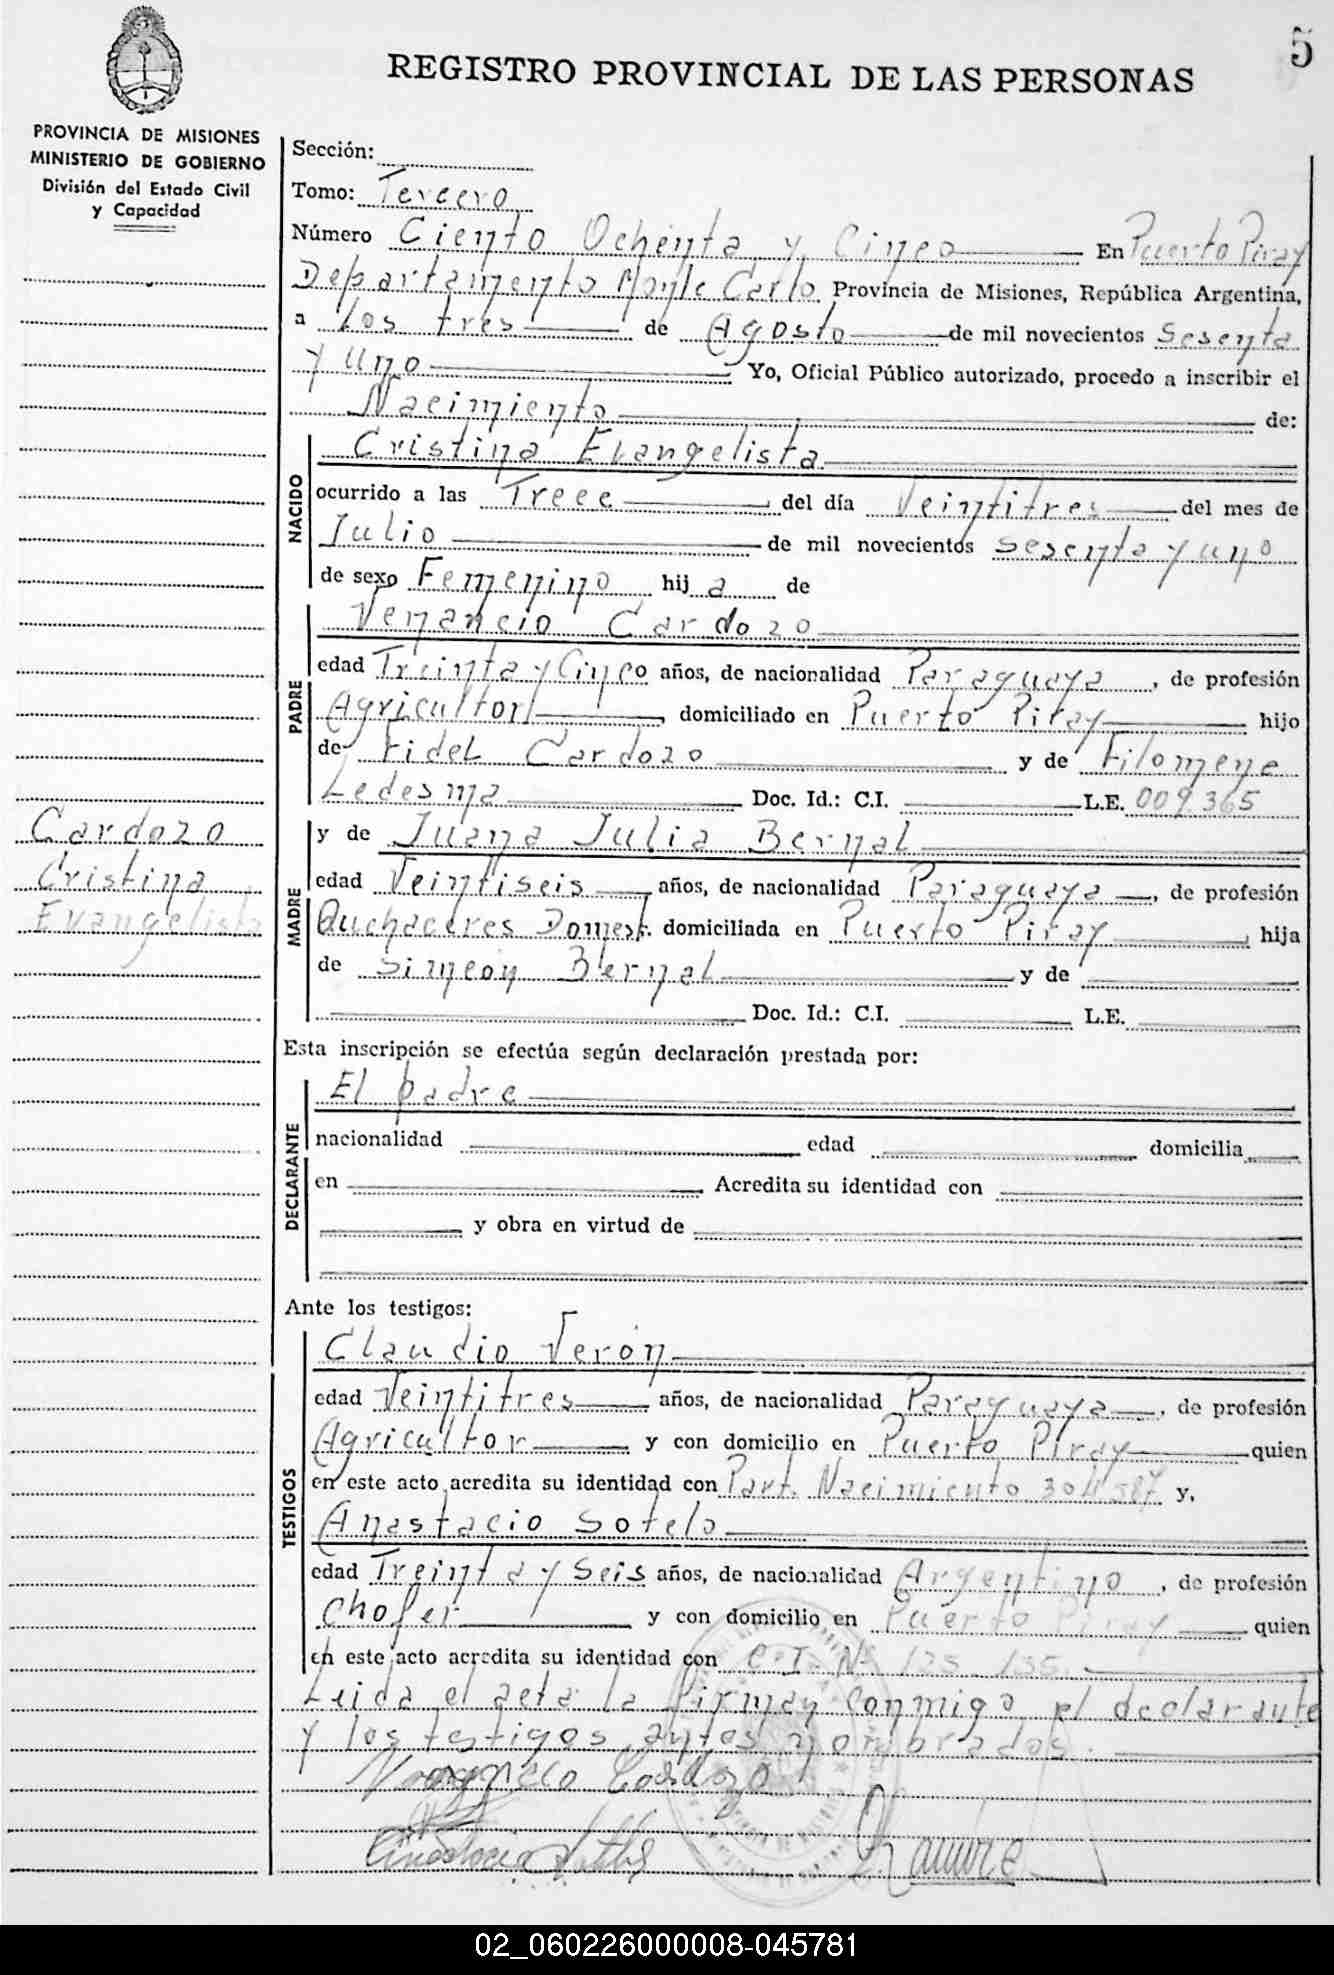 5
REGISTRO PROVINCIAL DE LAS PERSONAS
PROVINCIA DE MISIONES
MINISTERIO DE GOBIERNO
División del Estado Civil
y Capacidad
Cardozo
Cristina
Evangelista
Sección:
Tomo: Tercero
Número Ciento Ochenta y Cinco En Puerto Piray
Departamento Monte Carlo Provincia de Misiones, República Argentina,
a los tres de Agosto de mil novecientos Sesenta
y uno Yo, Oficial Público autorizado, procedo a inscribir el
Nacimiento de:
NACIDO
Cristina Evangelista
ocurrido a las Trece del día Veintitres del mes de
Julio de mil novecientos sesenta y uno
de sexo Femenino hij a de
PADRE
Venancio Cardozo
edad Treinta y Cinco años, de nacionalidad Paraguaya, de profesión
Agricultor, domiciliado en Puerto Piray hijo
de Fidel Cardozo y de Filomena
Ledesma Doc. Id.: C.I. L.E. 009.365
MADRE
y de Juana Julia Bernal
edad Veintiseis años, de nacionalidad Paraguaya, de profesión
Quehaceres Domest. domiciliada en Puerto Piray, hija
de Simeon Bernal y de
Doc. Id.: C.I. L.E.
Esta inscripción se efectúa según declaración prestada por:
DECLARANTE
El padre
nacionalidad edad domicilia
en Acredita su identidad con
y obra en virtud de
Ante los testigos:
TESTIGOS
Claudio Verón
edad Veintitres años, de nacionalidad Paraguaya, de profesión
Agricultor y con domicilio en Puerto Piray quien
en este acto acredita su identidad con Part. Nacimiento y,
Anastacio Sotelo
edad Treinta y Seis años, de nacionalidad Argentino, de profesión
Chofer y con domicilio en Puerto Piray quien
en este acto acredita su identidad con C.I. Nº 125.135.
Leida el acta la firman conmigo el declarante
y los testigos antes nombrados.
Cardozo
02_060226000008-045781